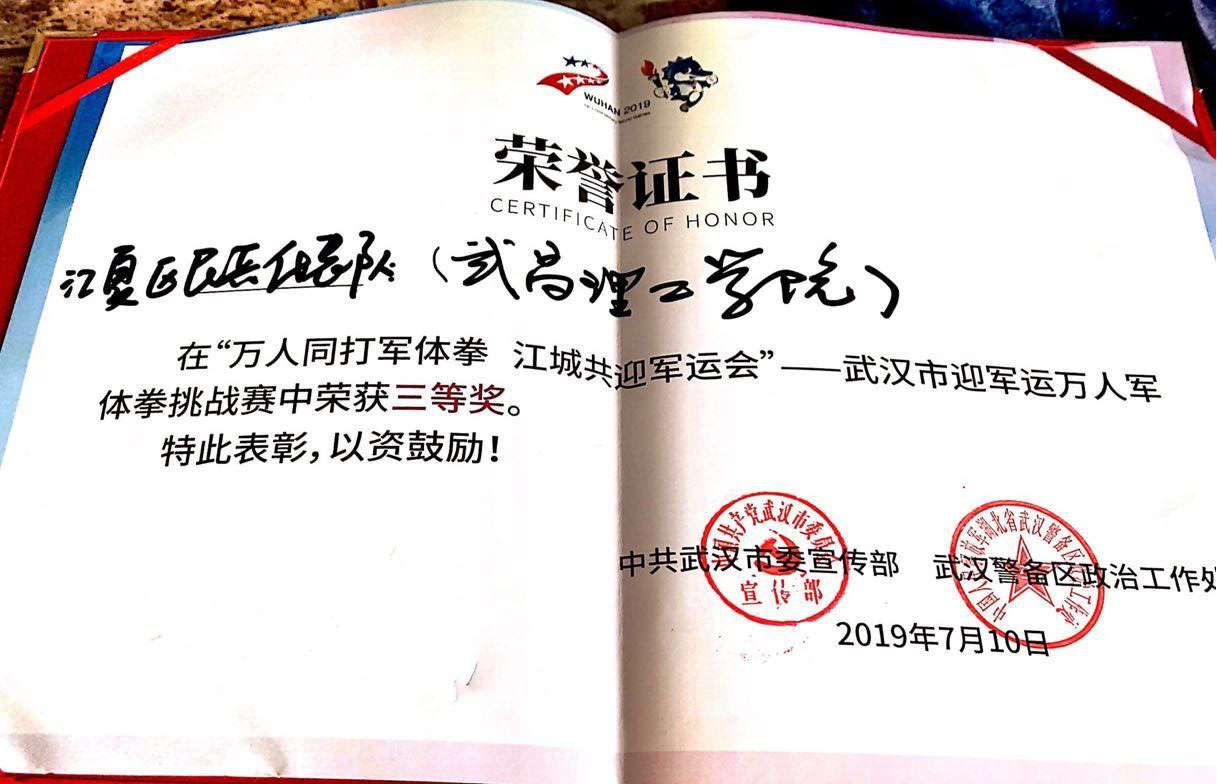 WUHAN 2019
荣誉证书
CERTIFICATE OF HONOR
江夏区民兵代表队（武昌理工学院）
在“万人同打军体拳 江城共迎军运会”——武汉市迎军运万人军
体拳挑战赛中荣获三等奖。
特此表彰，以资鼓励！
中国共产党武汉市委员会
宣传部
中国人民解放军湖北省武汉警备区政治工作处
中共武汉市委宣传部 武汉警备区政治工作处
2019年7月10日